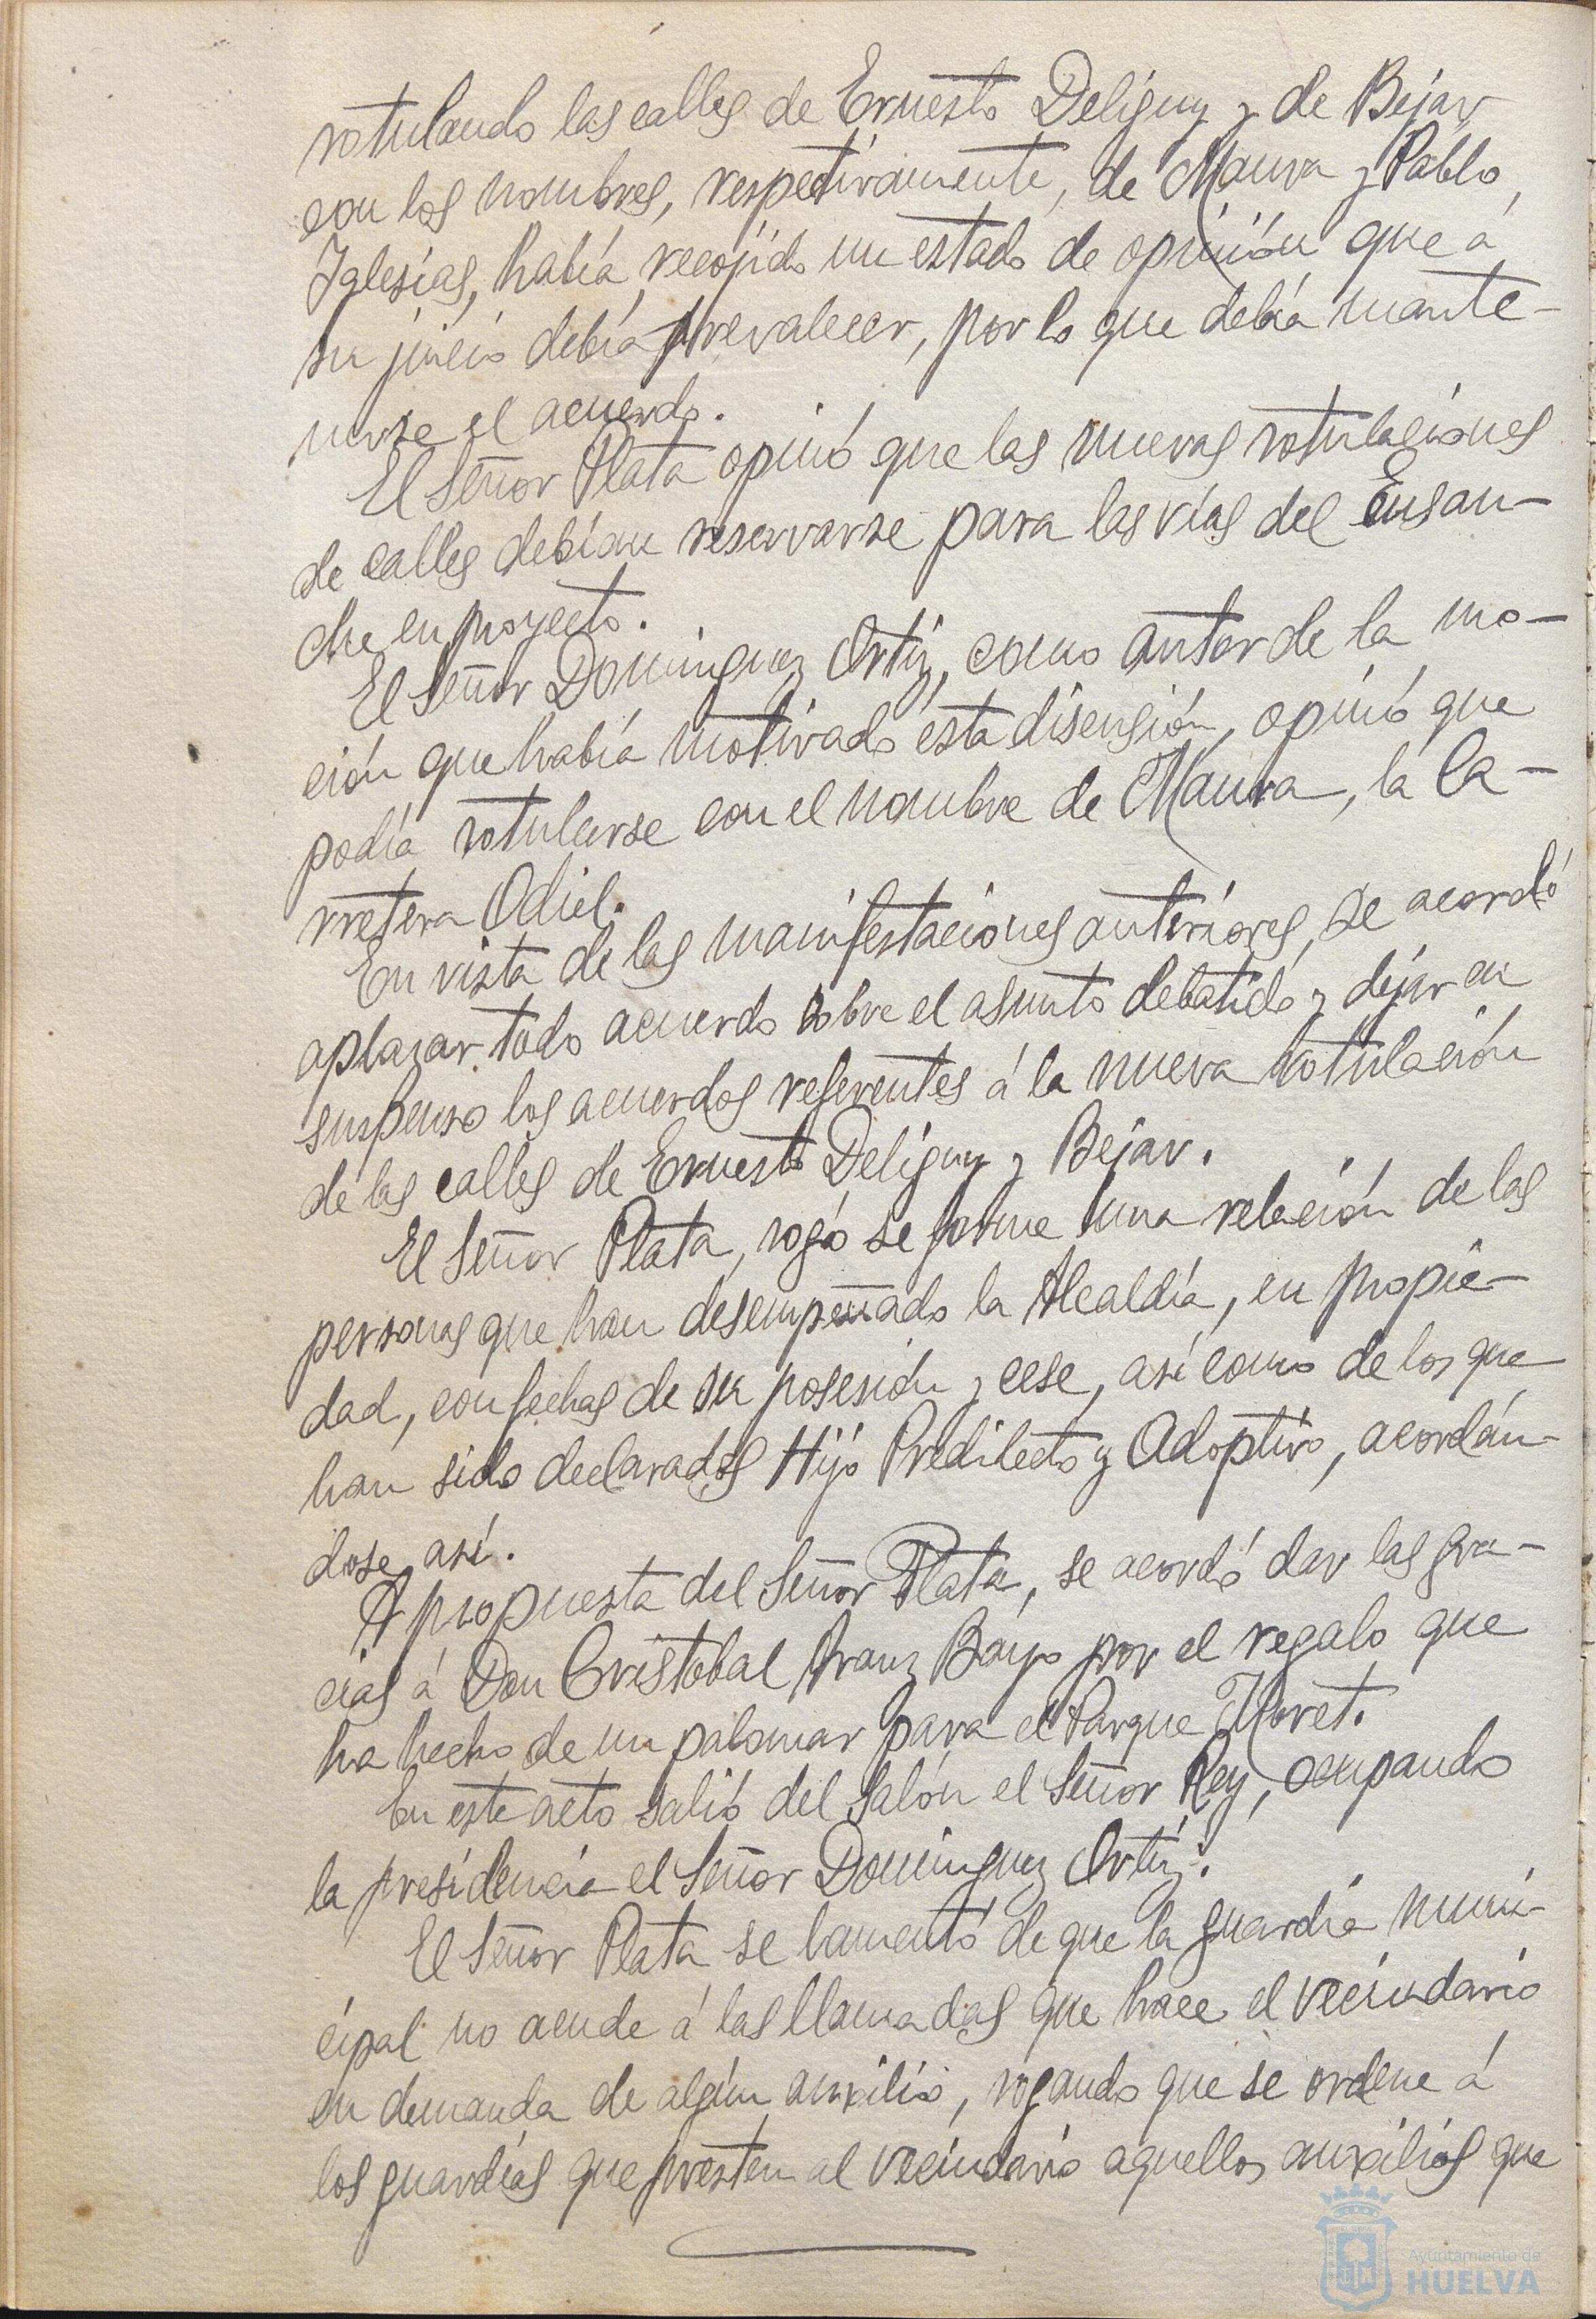 rotulando las calles de Ernesto Deligny y de Bejar
con los nombres, respectivamente, de Maura y Pablo
Iglesias, había recojido un estado de opinión que á
su juicio debía prevalecer, por lo que debía mante-
nerse el acuerdo.
El Señor Plata opinó que las nuevas rotulaciones
de calles debían reservarse para las vías del Ensan-
che en proyecto.
El Señor Dominguez Ortiz, como autor de la mo-
ción que había motivado ésta disensión, opinó que
podía rotularse con el nombre de Maura, la Ca-
rretera Odiel.
En vista de las manifestaciones anteriores, se acordó
aplazar todo acuerdo sobre el asunto debatido y dejar en
suspenso los acuerdos referentes á la nueva rotulación
de las calles de Ernesto Deligny y Bejar.
El Señor Plata, rogó se forme una relación de las
personas que han desempeñado la Alcaldía, en propie-
dad, con fechas de su posesión y cese, así como de los que
han sido declarados Hijo Predilecto y Adoptivo, acordán-
dose así.
A propuesta del Señor Plata, se acordó dar las gra-
cias á Don Cristobal Bayo por el regalo que
ha hecho de un palomar para el Parque Moret.
En este acto salió del Salón el Señor Rey, ocupando
la presidencia el Señor Dominguez Ortiz.
El Señor Plata se lamentó de que la guardia muni-
cipal no acude á las llamadas que hace el vecindario
en demanda de algún auxilio, rogando que se ordene á
los guardias que presten al vecindario aquellos auxilios que
Ayuntamiento de
HUELVA